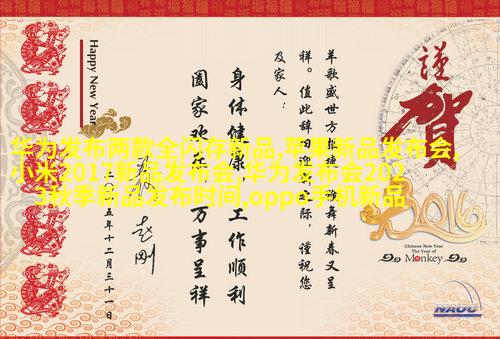 謹
賀
2016
Chinese New Year
The Year of
Monkey
NAOC
羊歌盛世方报捷，猴舞新春又呈
祥。值此辞旧迎新之际，谨祝您
及家人：
身体健康，工作顺利
阖家欢乐，万事呈祥
五年十二月三十一日
Happy New Year
华为发布两款全闪存新品,苹果新品发布会,
小米2017新品发布会,华为发布会202
3秋季新品发布时间,oppo手机新品